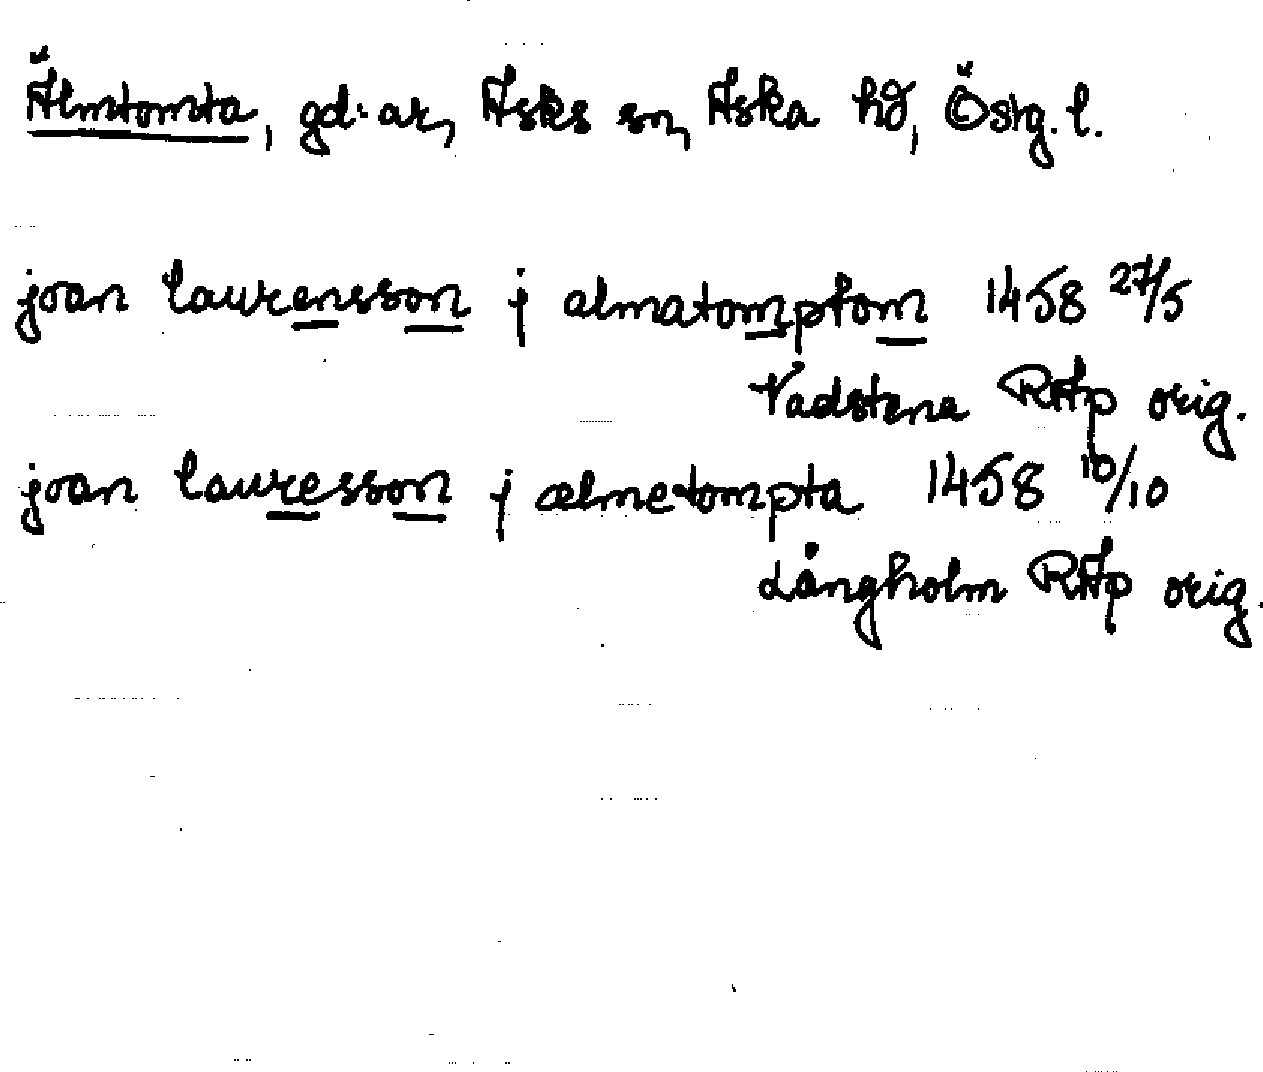 Älmtomta, gd: ar, Asks sn, Aska hd, Östg. l.
joan laurensson j almatomptom 1458 27/5
Vadstena RAp orig.
joan lauresson j ælmetompta 1458 10/10
Långholm RAp orig.